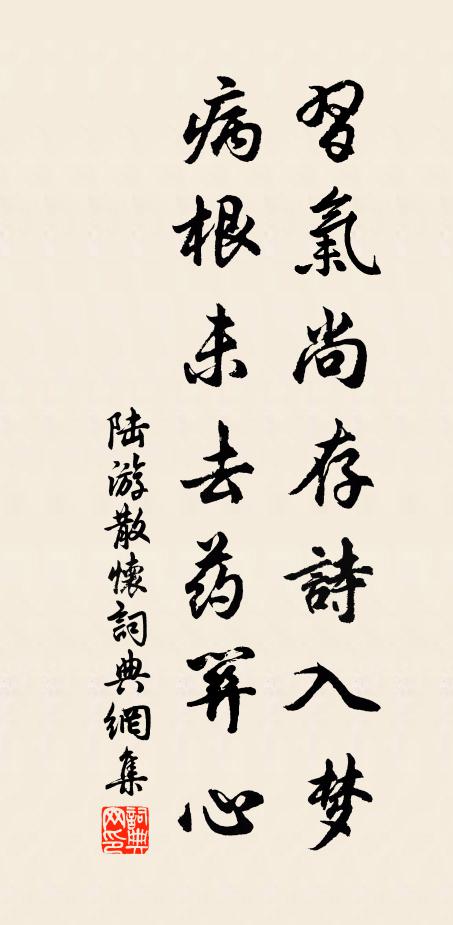 習氣尚存詩入夢
病根未去药關心
陆游散懷詞典網集
詞典网印